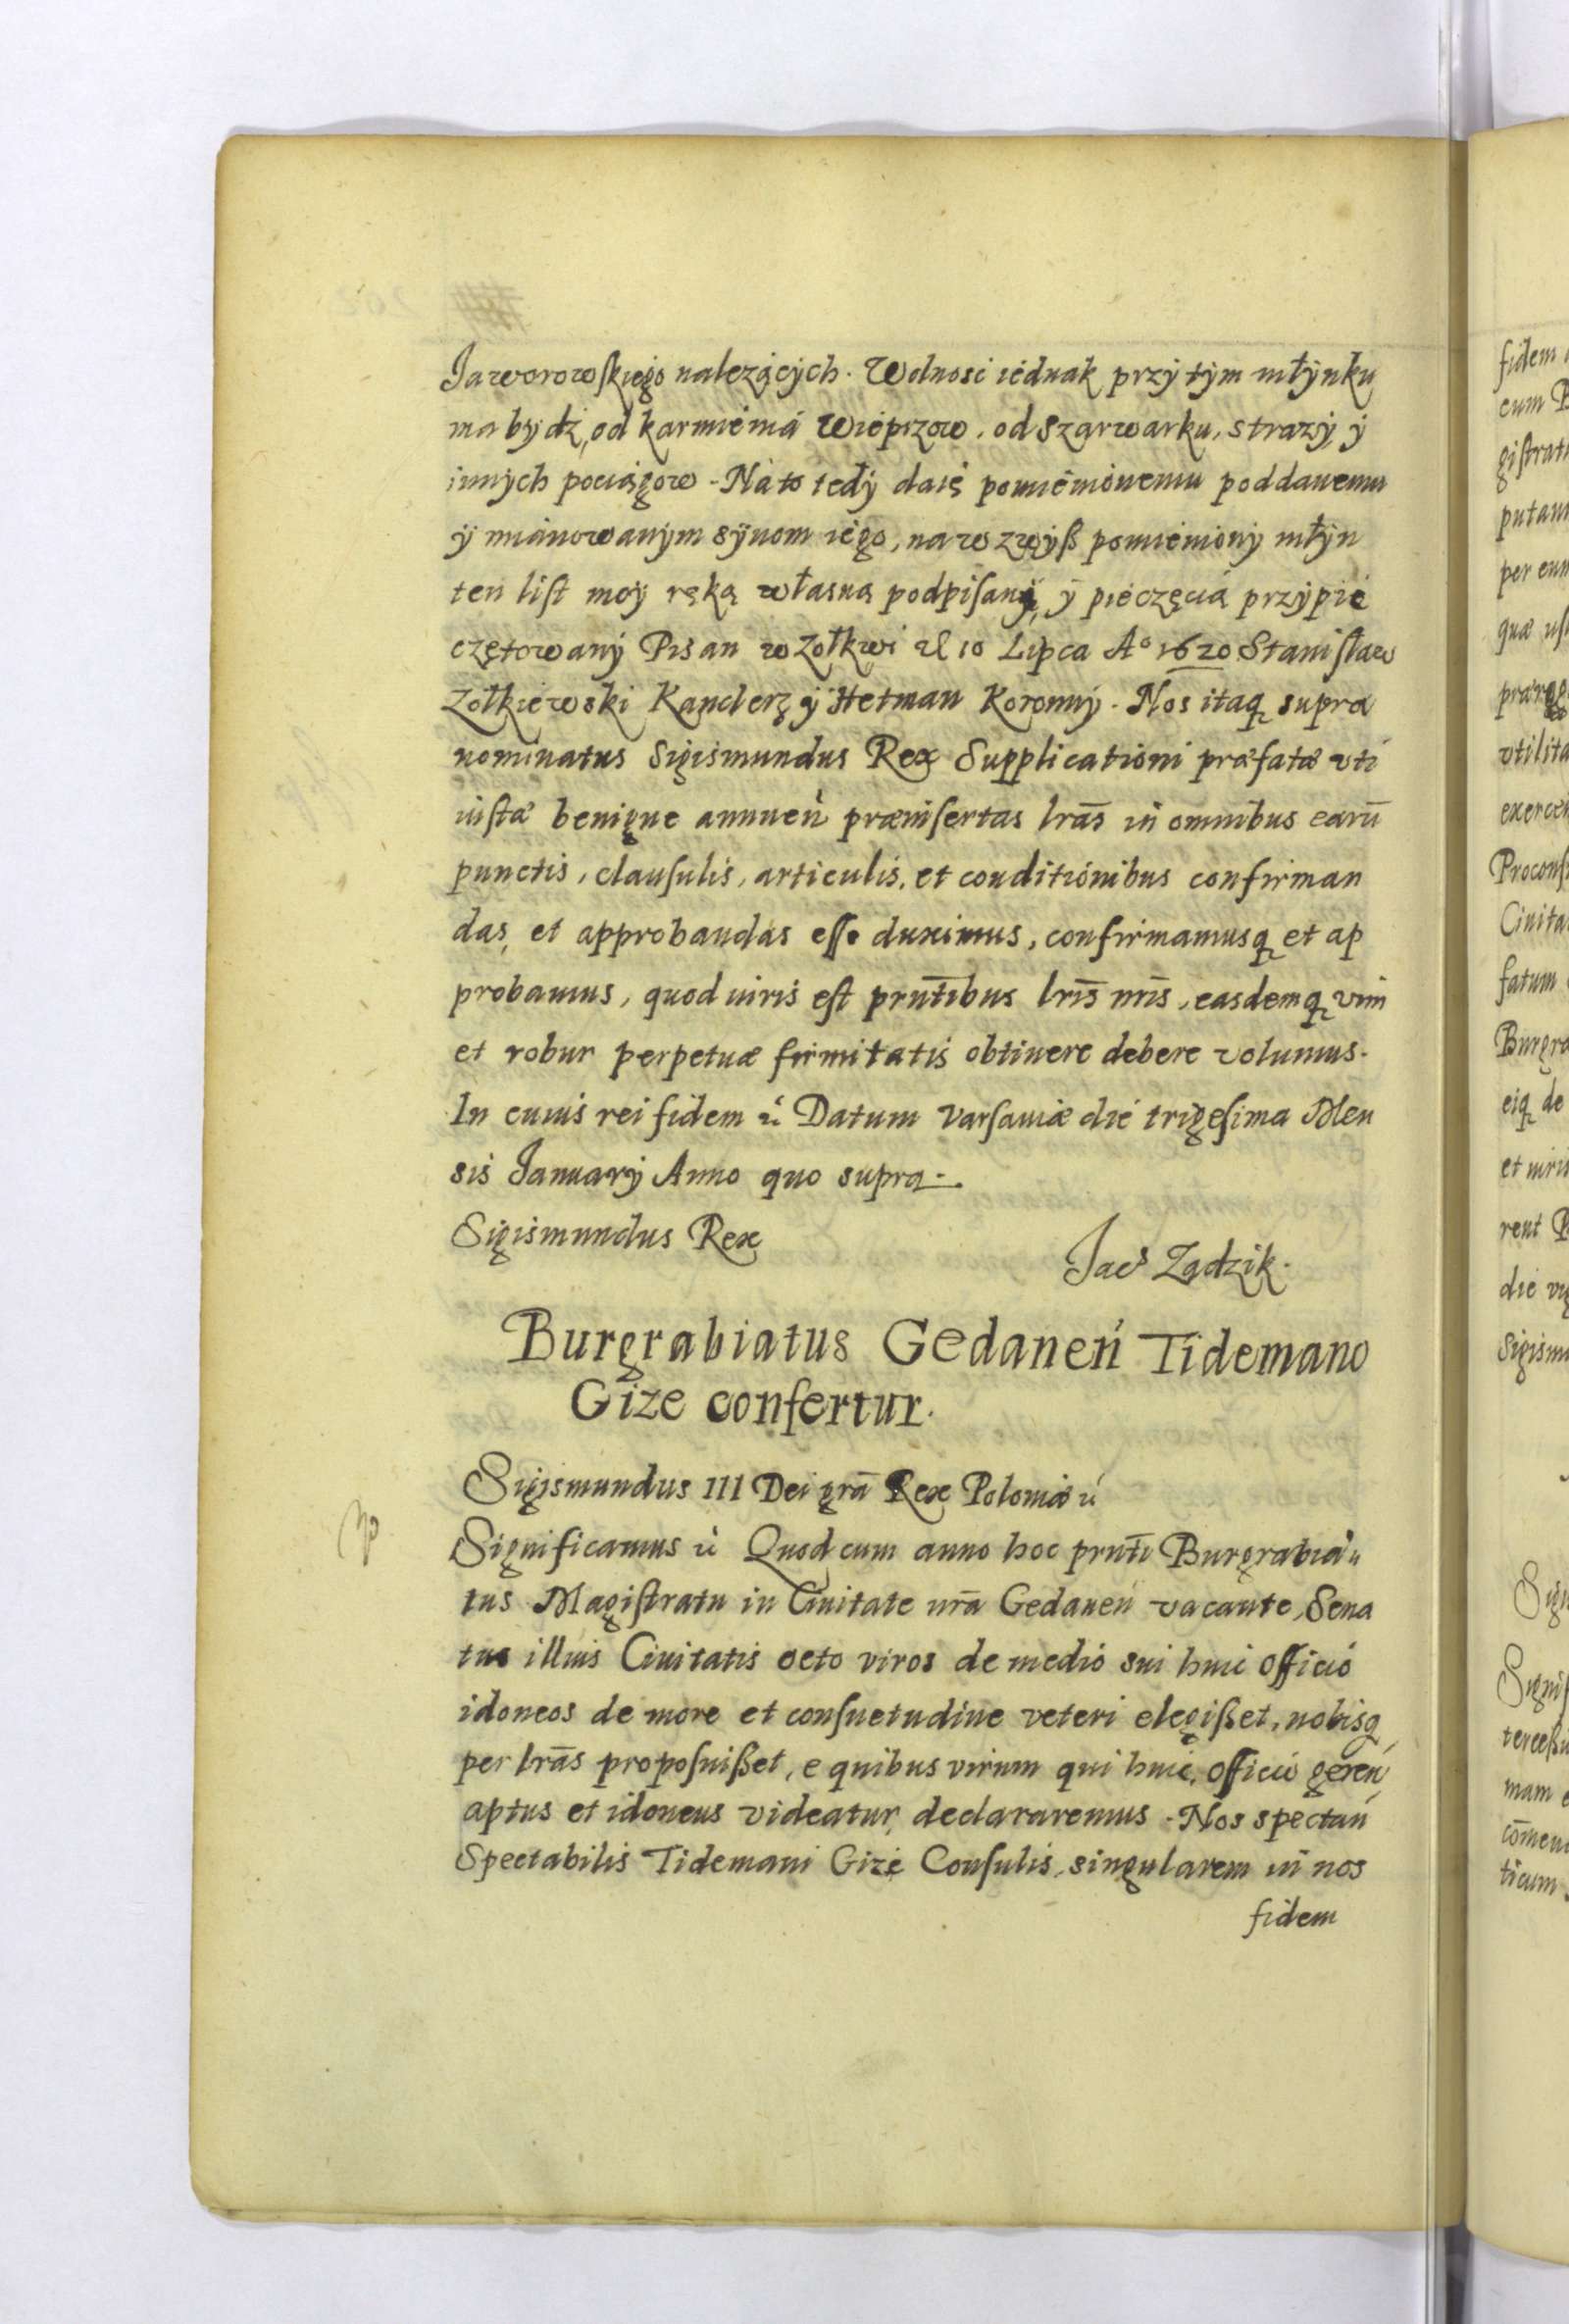 Jaworowskiego nalezących. Wolnosc iednak przy tym młynku
ma bydz, od karmienia wieprzow, od Szarwarku, strazy, y
innych pociągow. Na to tedy daię pomienionemu poddanemu
y mianowanym synom iego, na wzwyß pomieniony młyn
ten list moy ręką własną podpisany, y pieczęcią przypie
czętowany Pisan w Zołkwi d 10 Lipca A° 1620 Stanisław
Zołkiewski Kanclerz y Hetman Koronny. Nos itaq supra
nominatus Sigismundus Rex Supplicationi præfatæ vti
iustæ benigne annuen præinsertas lrās in omnibus earū
punctis, clausulis, articulis, et conditionibus confirman
das, et approbandas esse duximus, confirmamusq et ap
probamus, quod iuris est prntibus lris nris, easdemq vim
et robur perpetuæ firmitatis obtinere debere volumus.
In cuius rei fidem &c Datum Varsauiæ die trigesima Men
sis Januarij Anno quo supra.
Sigismundus Rex
Jac Zadzik.
Burgrabiatus Gedanen Tidemano
Gize confertur.
Sigismundus III Dei grā Rex Poloniæ &c
Significamus &c Quod cum anno hoc prnti Burgrabia
tus Magistratu in Ciuitate nrā Gedanen vacante, Sena
tus illius Ciuitatis octo viros de medio sui huic officio
idoneos de more et consuetudine veteri elegißet, nobisq
per lrās proposuißet, e quibus virum qui huic officio geren
aptus et idoneus videatur, declararemus. Nos spectan
Spectabilis Tidemani Gize Consulis, singularem in nos
fidem